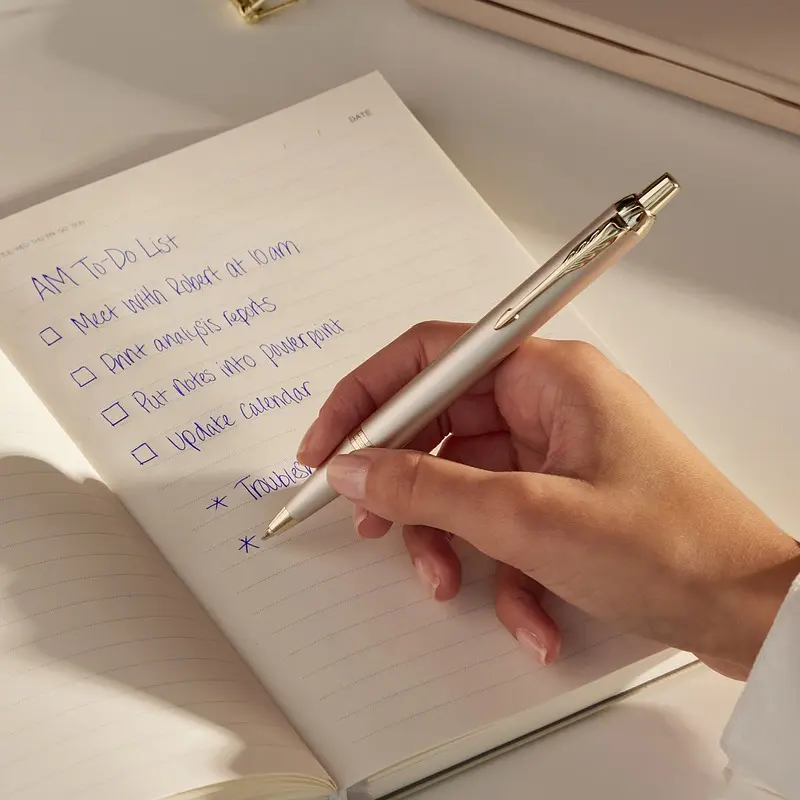 DATE
AM To-Do List
Meet with Robert at 10am
Print analysis reports
Put notes into powerpoint
Update calendar
* Troublesh
*